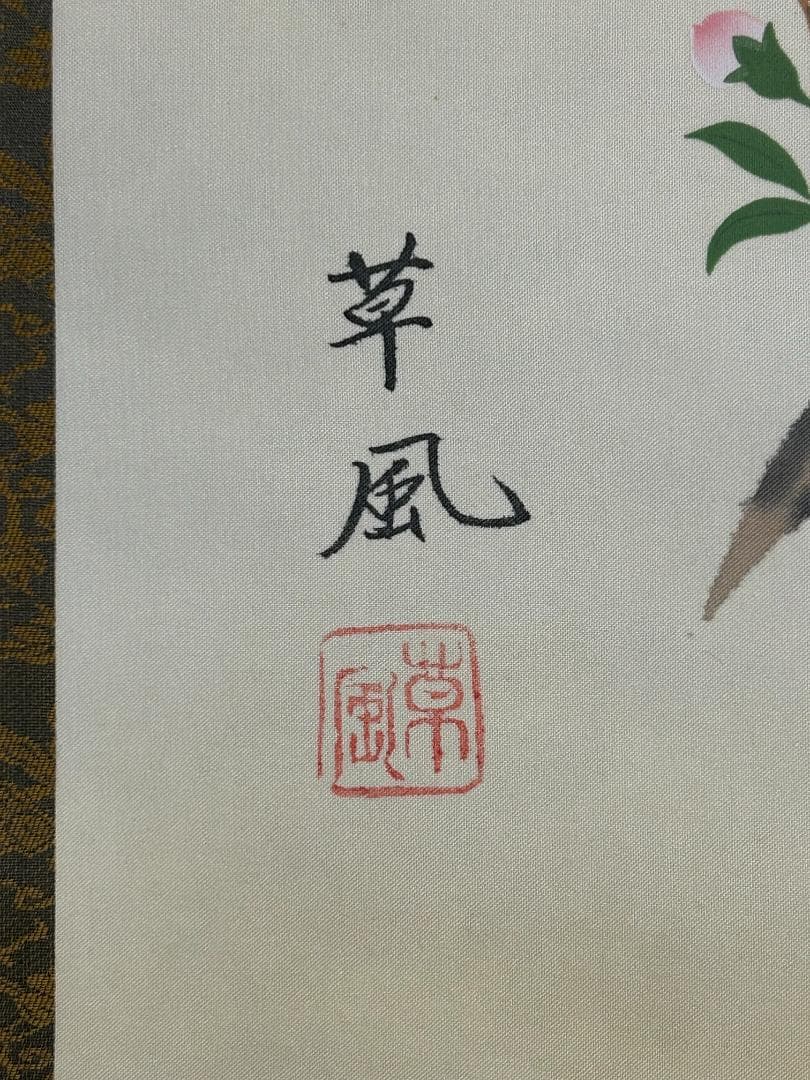 草風
草風